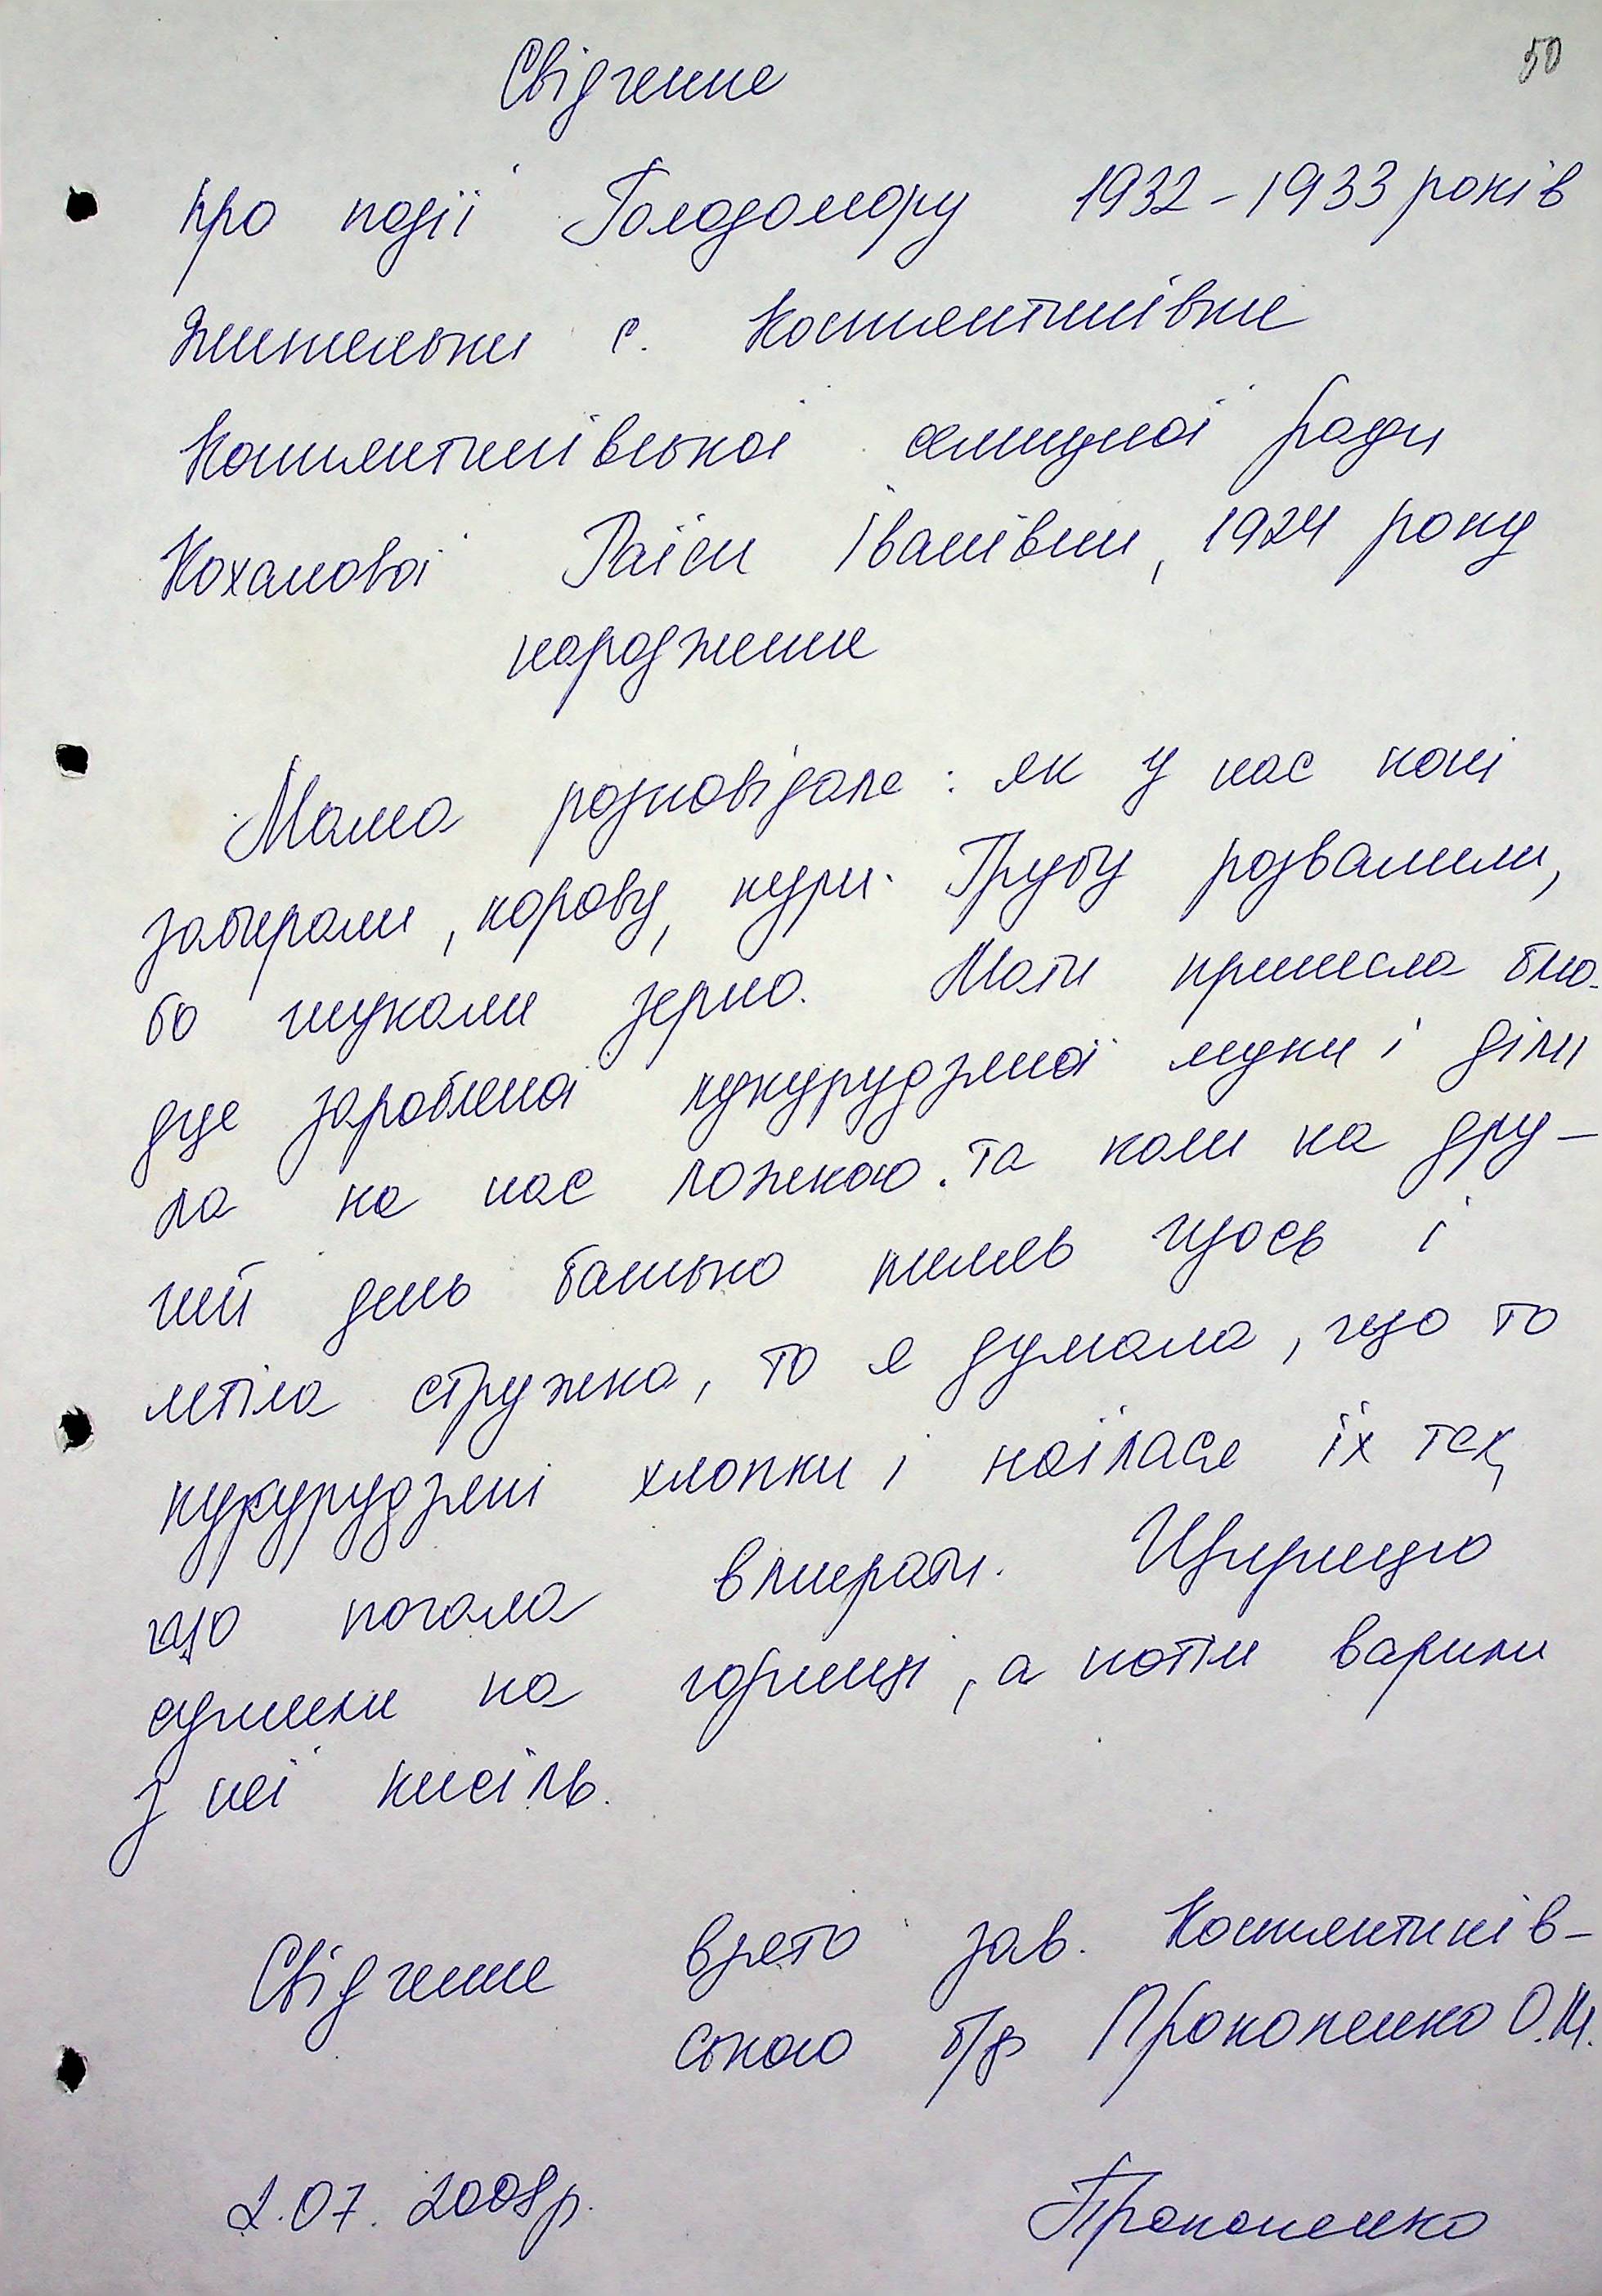 50
Свідчення
про події Голодомору 1932-1933 років
жительки с. Костянтинівка
Костянтинівської селищної ради
Коханової Раїси Іванівни, 1924 року
народження
Мама розповідала: як у нас коні
забирали, корову, кури. Грубу розвалили,
бо шукали зерно. Мати принесла блю-
дце заробленої кукурудзяної муки і діли
ла на нас ложкою. Та коли на дру-
гий день батько пиляв щось і
летіла стружка, то я думала, що то
кукурудзяні хлопки і наїлася їх так,
що почала вмирати. Щирицю
сушили на горищі, а потім варили
з неї кисіль.
Свідчення взято зав. Костянтинів-
ською б/ф Прокопенко О.М.
2.07.2008р. Прокопенко